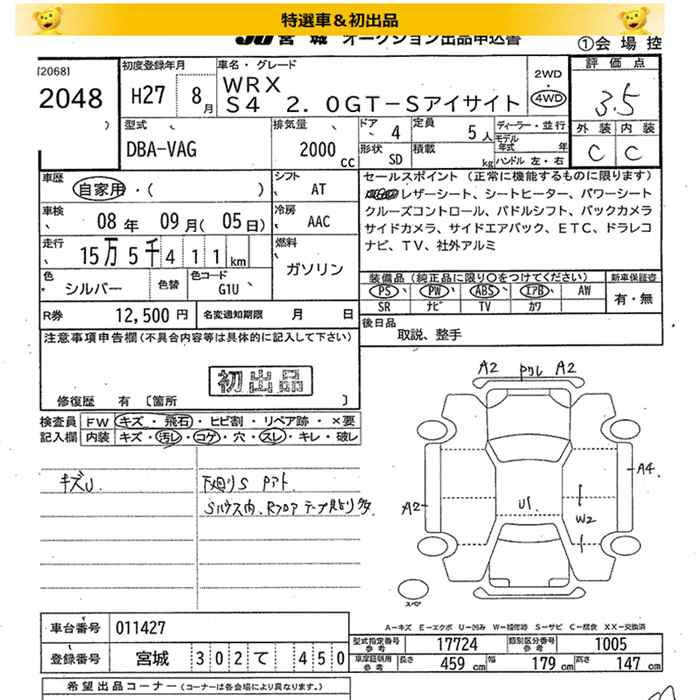 特選車＆初出品
JU 宮城 オークション出品申込書
①会場控
[2068]
2048
初度登録年月
H27 8月
車名・グレード
WRX
S4 2.0GT-Sアイサイト
2WD
・
4WD
評価点
3.5
外装 内装
C C
型式
DBA-VAG
排気量
2000 cc
ドア 4
定員 5人
形状 SD
積載 kg
ディーラー・並行
モデル年式 年
ハンドル 左・右
車歴
自家用・( )
シフト
AT
車検
08年 09月(05日)
冷房
AAC
走行
15万5千411km
燃料
ガソリン
色
シルバー
色替
色コード
G1U
R券 12,500円
名変通知期限 月 日
セールスポイント (正常に機能するものに限ります)
レザーシート、シートヒーター、パワーシート
クルーズコントロール、パドルシフト、バックカメラ
サイドカメラ、サイドエアバック、ETC、ドラレコ
ナビ、TV、社外アルミ
装備品(純正品に限り○をつけてください)
新車保証書
PS PW ABS エアB AW
SR ナビ TV カワ
有・無
後日品
取説、整手
注意事項申告欄(不具合内容等は具体的に記入して下さい)
初出品
修復歴 有 [箇所 ]
検査員記入欄
FW キズ・飛石・ヒビ割・リペア跡・×要
内装 キズ・汚レ・コゲ・穴・スレ・キレ・破レ
キズU
下廻りS アト
Sルウス内、Rフロア テープ貼り 多
A2 A2
A2
A4
U1
W2
スペア
A－キズ E－エクボ U－凹み W－補修跡 S－サビ C－腐食 XX－交換済
車台番号 011427
登録番号 宮城 302 て 450
型式指定番号 参考 17724
類別区分番号 参考 1005
車庫証明用 参考 長さ 459cm 幅 179cm 高さ 147cm
希望出品コーナー(コーナーは各会場により異なります。)